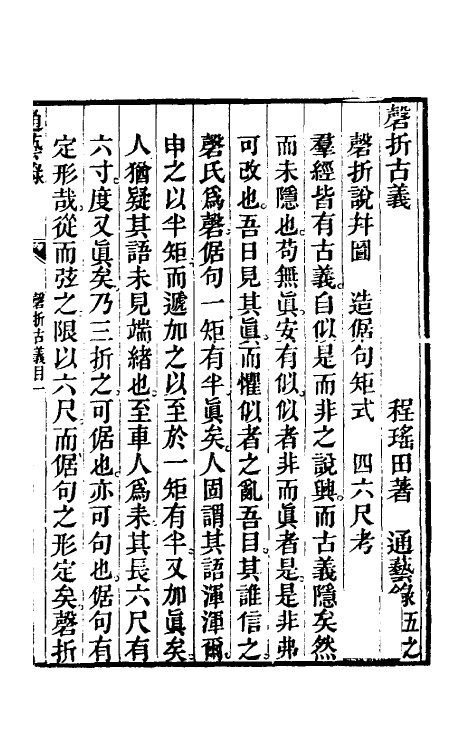 磬折古義　程瑤田著　通藝錄五之
磬折說幷圖　造倨句矩式　四六尺考
羣經皆有古義。自似是而非之說興。而古義隱矣。然
而未隱也。苟無眞。安有似。似者非而眞者是。是非弗
可改也。吾日見其眞。而懼似者之亂吾目。其誰信之
磬氏爲磬。倨句一矩有半。眞矣。人固謂其語渾渾爾。
申之以半矩而遞加之。以至於一矩有半。又加眞矣。
人猶疑其語未見端緒也。至車人爲耒。其長六尺有
六寸。度又眞矣。乃三折之。可倨也。亦可句也。倨句有
定形哉。從而弦之。限以六尺。而倨句之形定矣。磬折
通藝錄　磬折古義目　一